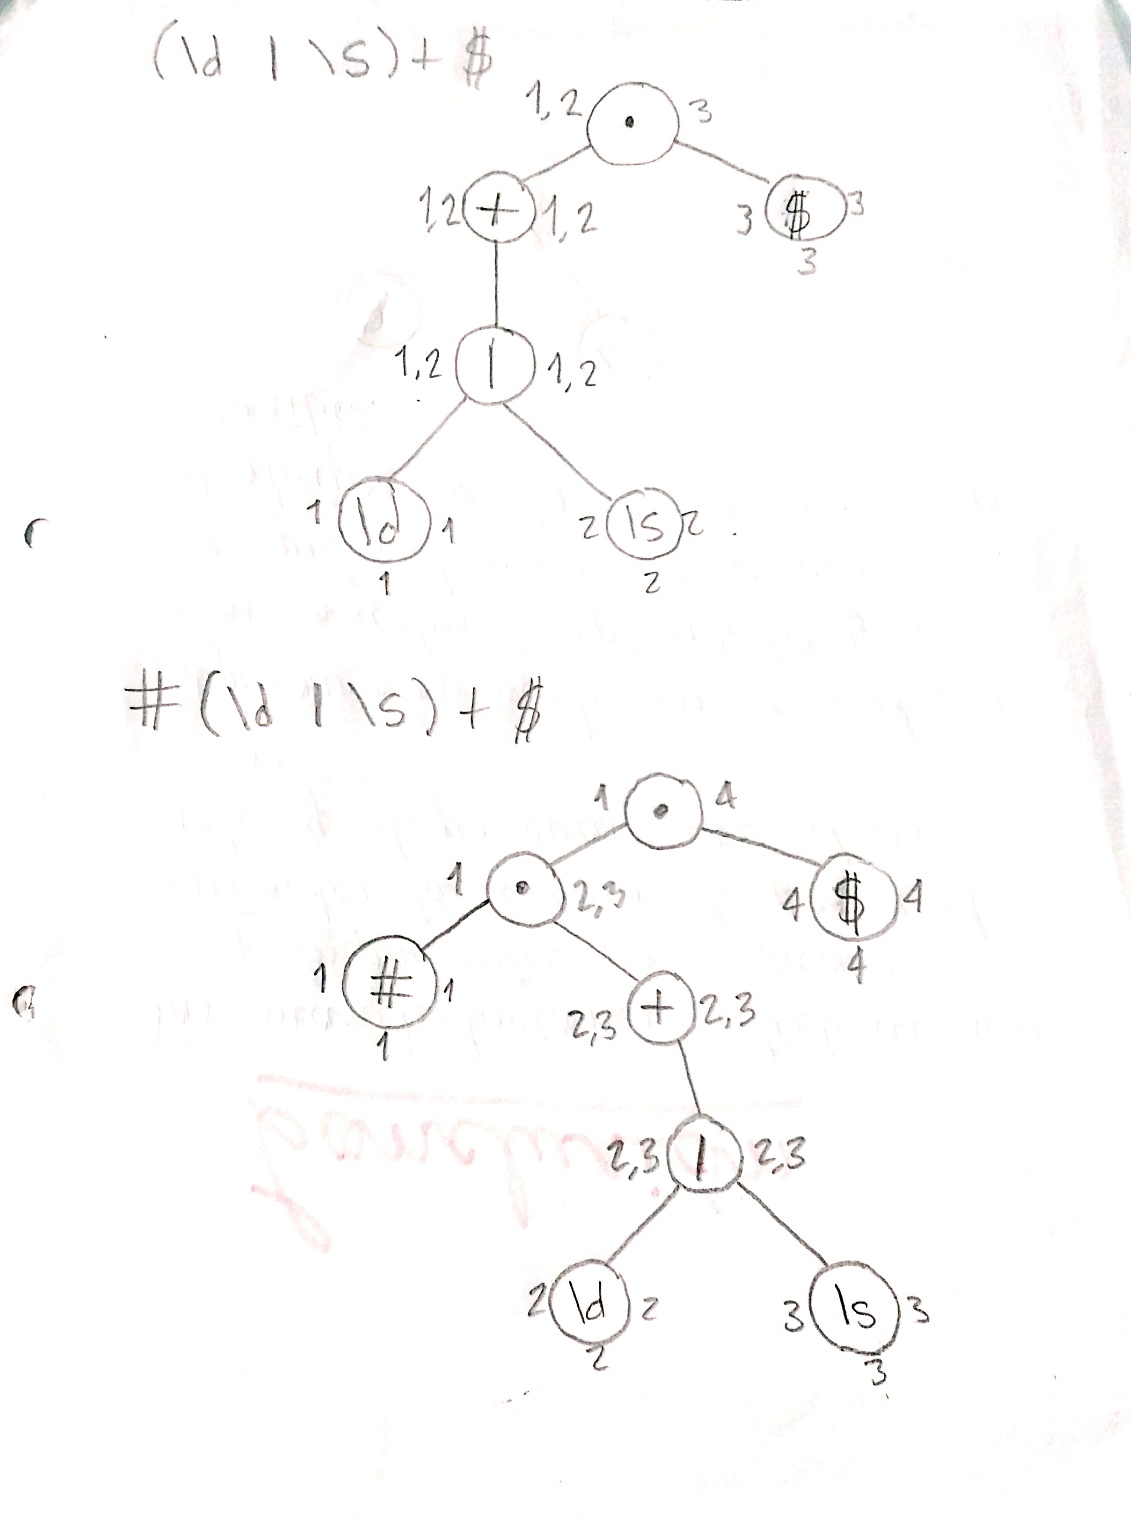 (\d | \s)+ $
1,2 • 3
1,2 + 1,2 3 $ 3
3
1,2 | 1,2
1 \d 1 2 \s 2
1 2
# (\d | \s) + $
1 • 4
1 • 2,3 4 $ 4
4
1 # 1 2,3 + 2,3
1
2,3 | 2,3
2 \d 2 3 \s 3
2 3